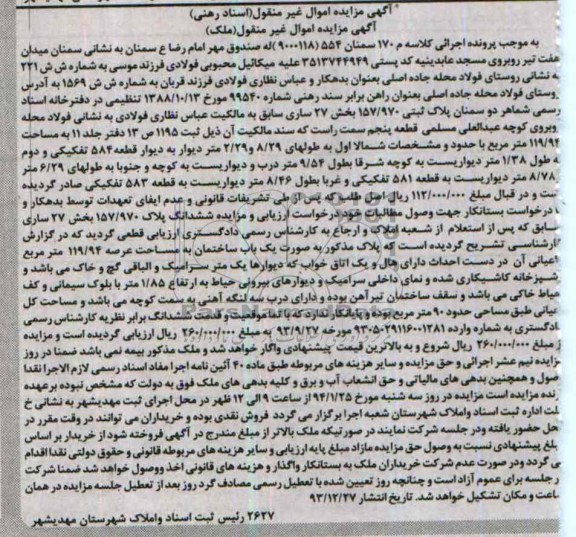 آگهی مزایده اموال غیر منقول(اسناد رهنی)
آگهی مزایده اموال غیر منقول(ملک)
به موجب پرونده اجرائی کلاسه م ۱۷۰ سمنان ۵۵۴ (۹۰۰۰۱۱۸) له صندوق مهر امام رضا ع سمنان به نشانی سمنان میدان
هفت تیر روبروی مسجد عابدینیه کد پستی ۳۵۱۳۷۴۴۹۴۹ علیه میکائیل محبوبی فولادی فرزند موسی به شماره ش ش ۲۲۱
به نشانی روستای فولاد محله جاده اصلی بعنوان بدهکار و عباس نظاری فولادی فرزند قربان به شماره ش ش ۱۵۶۹ به آدرس
روستای فولاد محله جاده اصلی بعنوان راهن برابر سند رهنی شماره ۹۹۵۴۰ مورخ ۱۳۸۸/۱۰/۱۳ تنظیمی در دفترخانه اسناد
رسمی شماهر دو سمنان پلاک ثبتی ۱۵۷/۹۷۰ بخش ۲۷ ساری سابق به مالکیت عباس نظاری فولادی به نشانی فولاد محله
روبروی کوچه عبدالعلی مسلمی قطعه پنجم سمت راست که سند مالکیت آن ذیل ثبت ۱۱۹۵ ص ۱۳ دفتر جلد ۱۱ به مساحت
۱۱۹/۹۴ متر مربع با حدود و مشخصات شمالا اول به طولهای ۸/۲۹ و ۲/۲۹ متر دیوار به دیوار قطعه ۵۸۴ تفکیکی و دوم
به طول ۱/۳۸ متر دیواریست به کوچه شرقا بطول ۹/۵۴ متر درب و دیواریست به کوچه و جنوبا به طولهای ۶/۲۹ متر
۸/۷۸ متر دیواریست به قطعه ۵۸۱ تفکیکی و غربا بطول ۸/۴۶ متر دیواریست به قطعه ۵۸۳ تفکیکی صادر گردیده
است و در قبال مبلغ ۱۱۲/۰۰۰/۰۰۰ ریال اصل طلب که پس از طی تشریفات قانونی و عدم ایفای تعهدات توسط بدهکار و
با درخواست بستانکار جهت وصول مطالبات خود درخواست ارزیابی و مزایده ششدانگ پلاک ۱۵۷/۹۷۰ بخش ۲۷ ساری
سابق که پس از استعلام از شعبه املاک و ارجاع به کارشناس رسمی دادگستری ارزیابی قطعی گردید که در گزارش
کارشناسی تشریح گردیده است که پلاک مذکور به صورت یک باب ساختمان به مساحت عرصه ۱۱۹/۹۴ متر مربع
اعیانی آن در دست احداث دارای هال و یک اتاق خواب که دیوارها یک متر سرامیک و الباقی گچ و خاک می باشد و
آشپزخانه کاشیکاری شده و نمای داخلی سرامیک و دیوارهای بیرونی حیاط به ارتفاع ۱/۸۵ متر با بلوک سیمانی و کف
حیاط خاکی می باشد و سقف ساختمان تیرآهن بوده و دارای درب سه لنگه آهنی به سمت کوچه می باشد و مساحت کل
اعیانی طبق مساحی حدود ۹۰ متر مربع بوده و پایانکار ندارد که با تمام متعلقات ششدانگ برابر نظریه کارشناس رسمی
دادگستری به شماره وارده ۹۳۰۵۰۲۹۱۱۶۰۰۱۲۸۱ مورخه ۹۳/۹/۲۷ به مبلغ ۲۶۰/۰۰۰/۰۰۰ ریال ارزیابی گردیده است و مزایده
از مبلغ ۲۶۰/۰۰۰/۰۰۰ ریال شروع و به بالاترین قیمت پیشنهادی واگار خواهد شد و ملک مذکور بیمه نمی باشد ضمنا در روز
مزایده نیم عشر اجرائی و حق مزایده و سایر هزینه های مربوطه طبق ماده ۴۰ آئین نامه اجرا مفاد اسناد رسمی لازم الاجرا نقدا
وصول و همچنین بدهی های مالیاتی و حق انشعاب آب و برق و کلیه بدهی های ملک فوق به دولت که مشخص نبوده برعهده
برنده مزایده است مزایده در روز سه شنبه مورخ ۹۴/۱/۲۵ از ساعت ۹ الی ۱۲ ظهر در محل اجرای ثبت مهدیشهر به نشانی خ
ملت اداره ثبت اسناد واملاک شهرستان شعبه اجرا برگزار می گردد فروش نقدی بوده و خریداران می توانند در وقت مقرر در
محل حضور یافته ودر جلسه شرکت نمایند در صورتیکه ملک بالاتر از مبلغ مندرج در آگهی فروخته شود از خریدار بر اساس
مبلغ پیشنهادی نسبت به وصول حق مزایده مازاد مبلغ پایه ارزیابی و سایر هزینه های مربوطه قانونی و حقوق دولتی نقدا اقدام
می گردد ودر صورت عدم شرکت خریداران ملک به بستانکار واگذار و هزینه های قانونی اخذ ووصول خواهد شد ضمنا شرکت
در جلسه برای عموم آزاد است و چنانچه روز تعیین شده با تعطیل رسمی مصادف گرد روز بعد از تعطیل جلسه مزایده در همان
ساعت و مکان تشکیل خواهد شد. تاریخ انتشار ۹۳/۱۲/۲۷
۲۶۲۷ رئیس ثبت اسناد واملاک شهرستان مهدیشهر